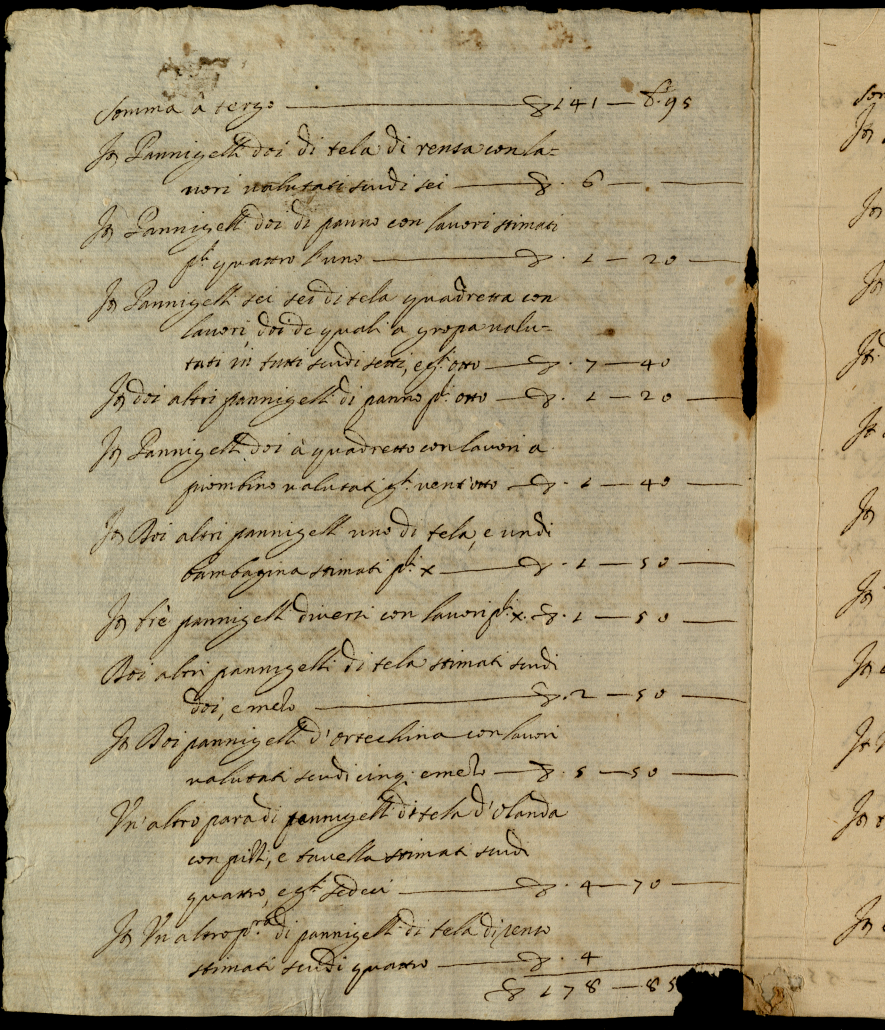 Somma à tergo — ∇ 141 — b. 95
It Pannigelli doi di tela di rensa con la=
uori ualutati scudi sei — ∇ . 6 —
It Pannigelli doi di panno con lauori stimati
pli quattro l'uno — ∇ . 1 — 20 —
It Pannigelli sei di tela quadretta con
lauori, doi de quali a gropa ualu=
tati in tutti scudi setti, e gli otto — ∇ . 7 — 40
It doi altri pannigelli di panno pli otto — ∇ . 1 — 20 —
It Pannigelli doi à quadretto con lauori a
piombino ualutati gli uent'otto — ∇ . 1 — 40 —
It Doi altri pannigelli uno di tela, e un di
bambagina stimati pli x — ∇ . 1 — 50 —
It trè pannigelli diuersi con lauori pli x. ∇ . 1 — 50 —
Doi altri pannigelli di tela stimati scudi
doi, e mezo — ∇ . 2 — 50 —
It Doi pannigelli d'ortechina con lauori
ualutati scudi cinq. e mezo — ∇ . 5 — 50 —
Un'altro para di pannigelli di tela d'Olanda
con pizzi, e tauella stimati scudi
quattro, e gli sedeci — ∇ . 4 — 70 —
It Un altro p.ra di pannigelli di tela di
stimati scudi quattro — ∇ . 4
∇ 178 — 85